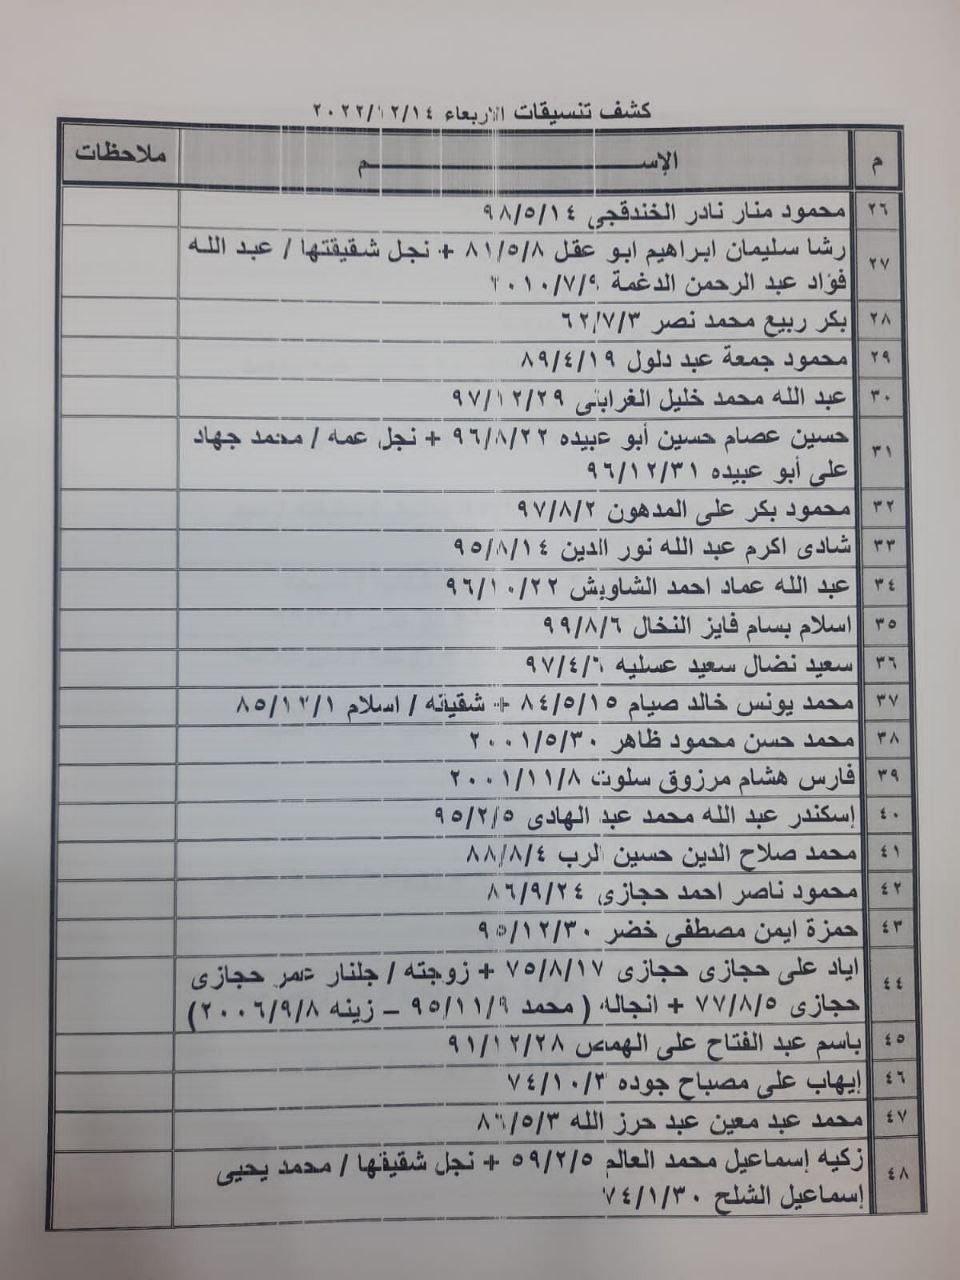 كشف تنسيقات الاربعاء ٢٠٢٢/١٢/١٤
م الإســـــــــم ملاحظات
٢٦ محمود منار نادر الخندقجي ٩٨/٥/١٤
٢٧ رشا سليمان ابراهيم ابو عقل ٨١/٥/٨ + نجل شقيقتها / عبد الله
فؤاد عبد الرحمن الدغمة ٢٠١٠/٧/٩
٢٨ بكر ربيع محمد نصر ٦٢/٧/٣
٢٩ محمود جمعة عبد دلول ٨٩/٤/١٩
٣٠ عبد الله محمد خليل الغرابلى ٩٧/١٢/٢٩
٣١ حسين عصام حسين أبو عبيده ٩٦/٨/٢٢ + نجل عمه / محمد جهاد
على أبو عبيده ٩٦/١٢/٣١
٣٢ محمود بكر على المدهون ٩٧/٨/٢
٣٣ شادى اكرم عبد الله نور الدين ٩٥/٨/١٤
٣٤ عبد الله عماد احمد الشاويش ٩٦/١٠/٢٢
٣٥ اسلام بسام فايز النخال ٩٩/٨/٦
٣٦ سعيد نضال سعيد عسليه ٩٧/٤/٦
٣٧ محمد يونس خالد صيام ٨٤/٥/١٥ + شقيقه / اسلام ٨٥/١٢/١
٣٨ محمد حسن محمود ظاهر ٢٠٠١/٥/٣٠
٣٩ فارس هشام مرزوق سلوت ٢٠٠١/١١/٨
٤٠ إسكندر عبد الله محمد عبد الهادى ٩٥/٢/٥
٤١ محمد صلاح الدين حسين الرب ٨٨/٨/٤
٤٢ محمود ناصر احمد حجازى ٨٦/٩/٢٤
٤٣ حمزة ايمن مصطفى خضر ٩٥/١٢/٣٠
٤٤ اياد على حجازى حجازى ٧٥/٨/١٧ + زوجته / جلنار عمر حجازى
حجازى ٧٧/٨/٥ + انجاله ( محمد ٩٥/١١/٩ – زينه ٢٠٠٦/٩/٨)
٤٥ باسم عبد الفتاح على الهمص ٩١/١٢/٢٨
٤٦ إيهاب على مصباح جوده ٧٤/١٠/٣
٤٧ محمد عبد معين عبد حرز الله ٨٦/٥/٣
٤٨ زكيه إسماعيل محمد العالم ٥٩/٢/٥ + نجل شقيقها / محمد يحيى
إسماعيل الشلح ٧٤/١/٣٠